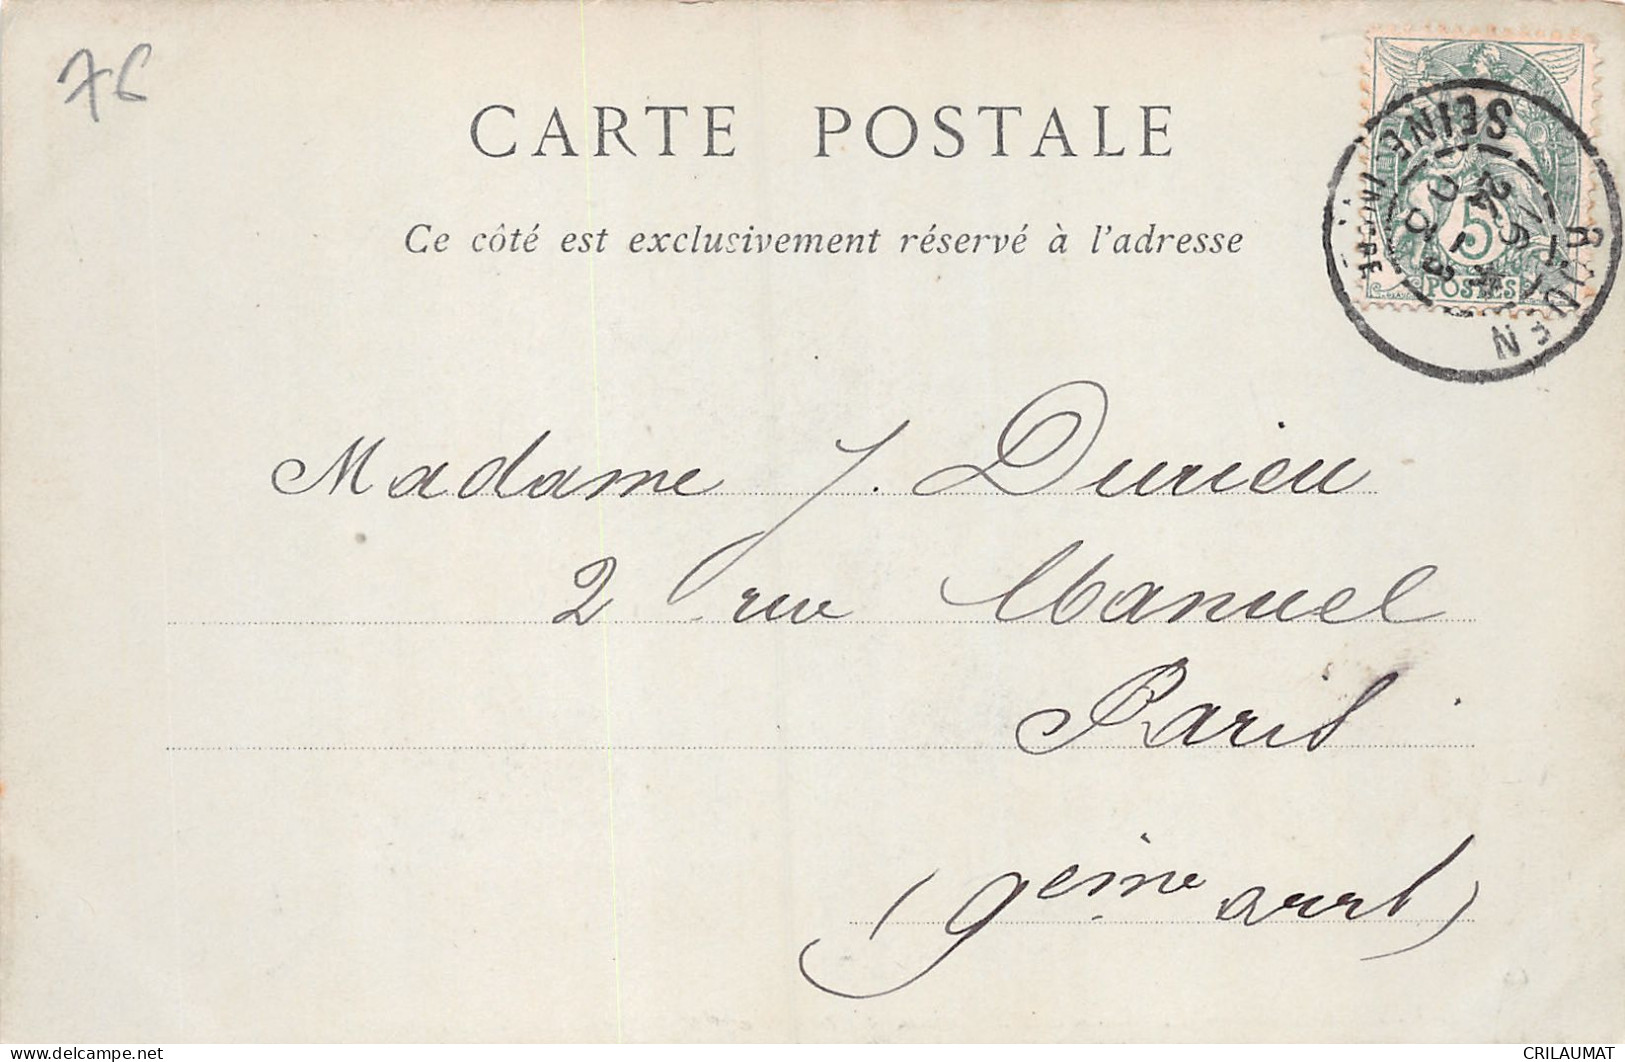 76
CARTE POSTALE
Ce côté est exclusivement réservé à l'adresse
5
POSTES
ROUEN
SEINE INFRE
Madame J. Durieu
2 rue Manuel
Paris
(9eme arrt)
delcampe.net
CRILAUMAT